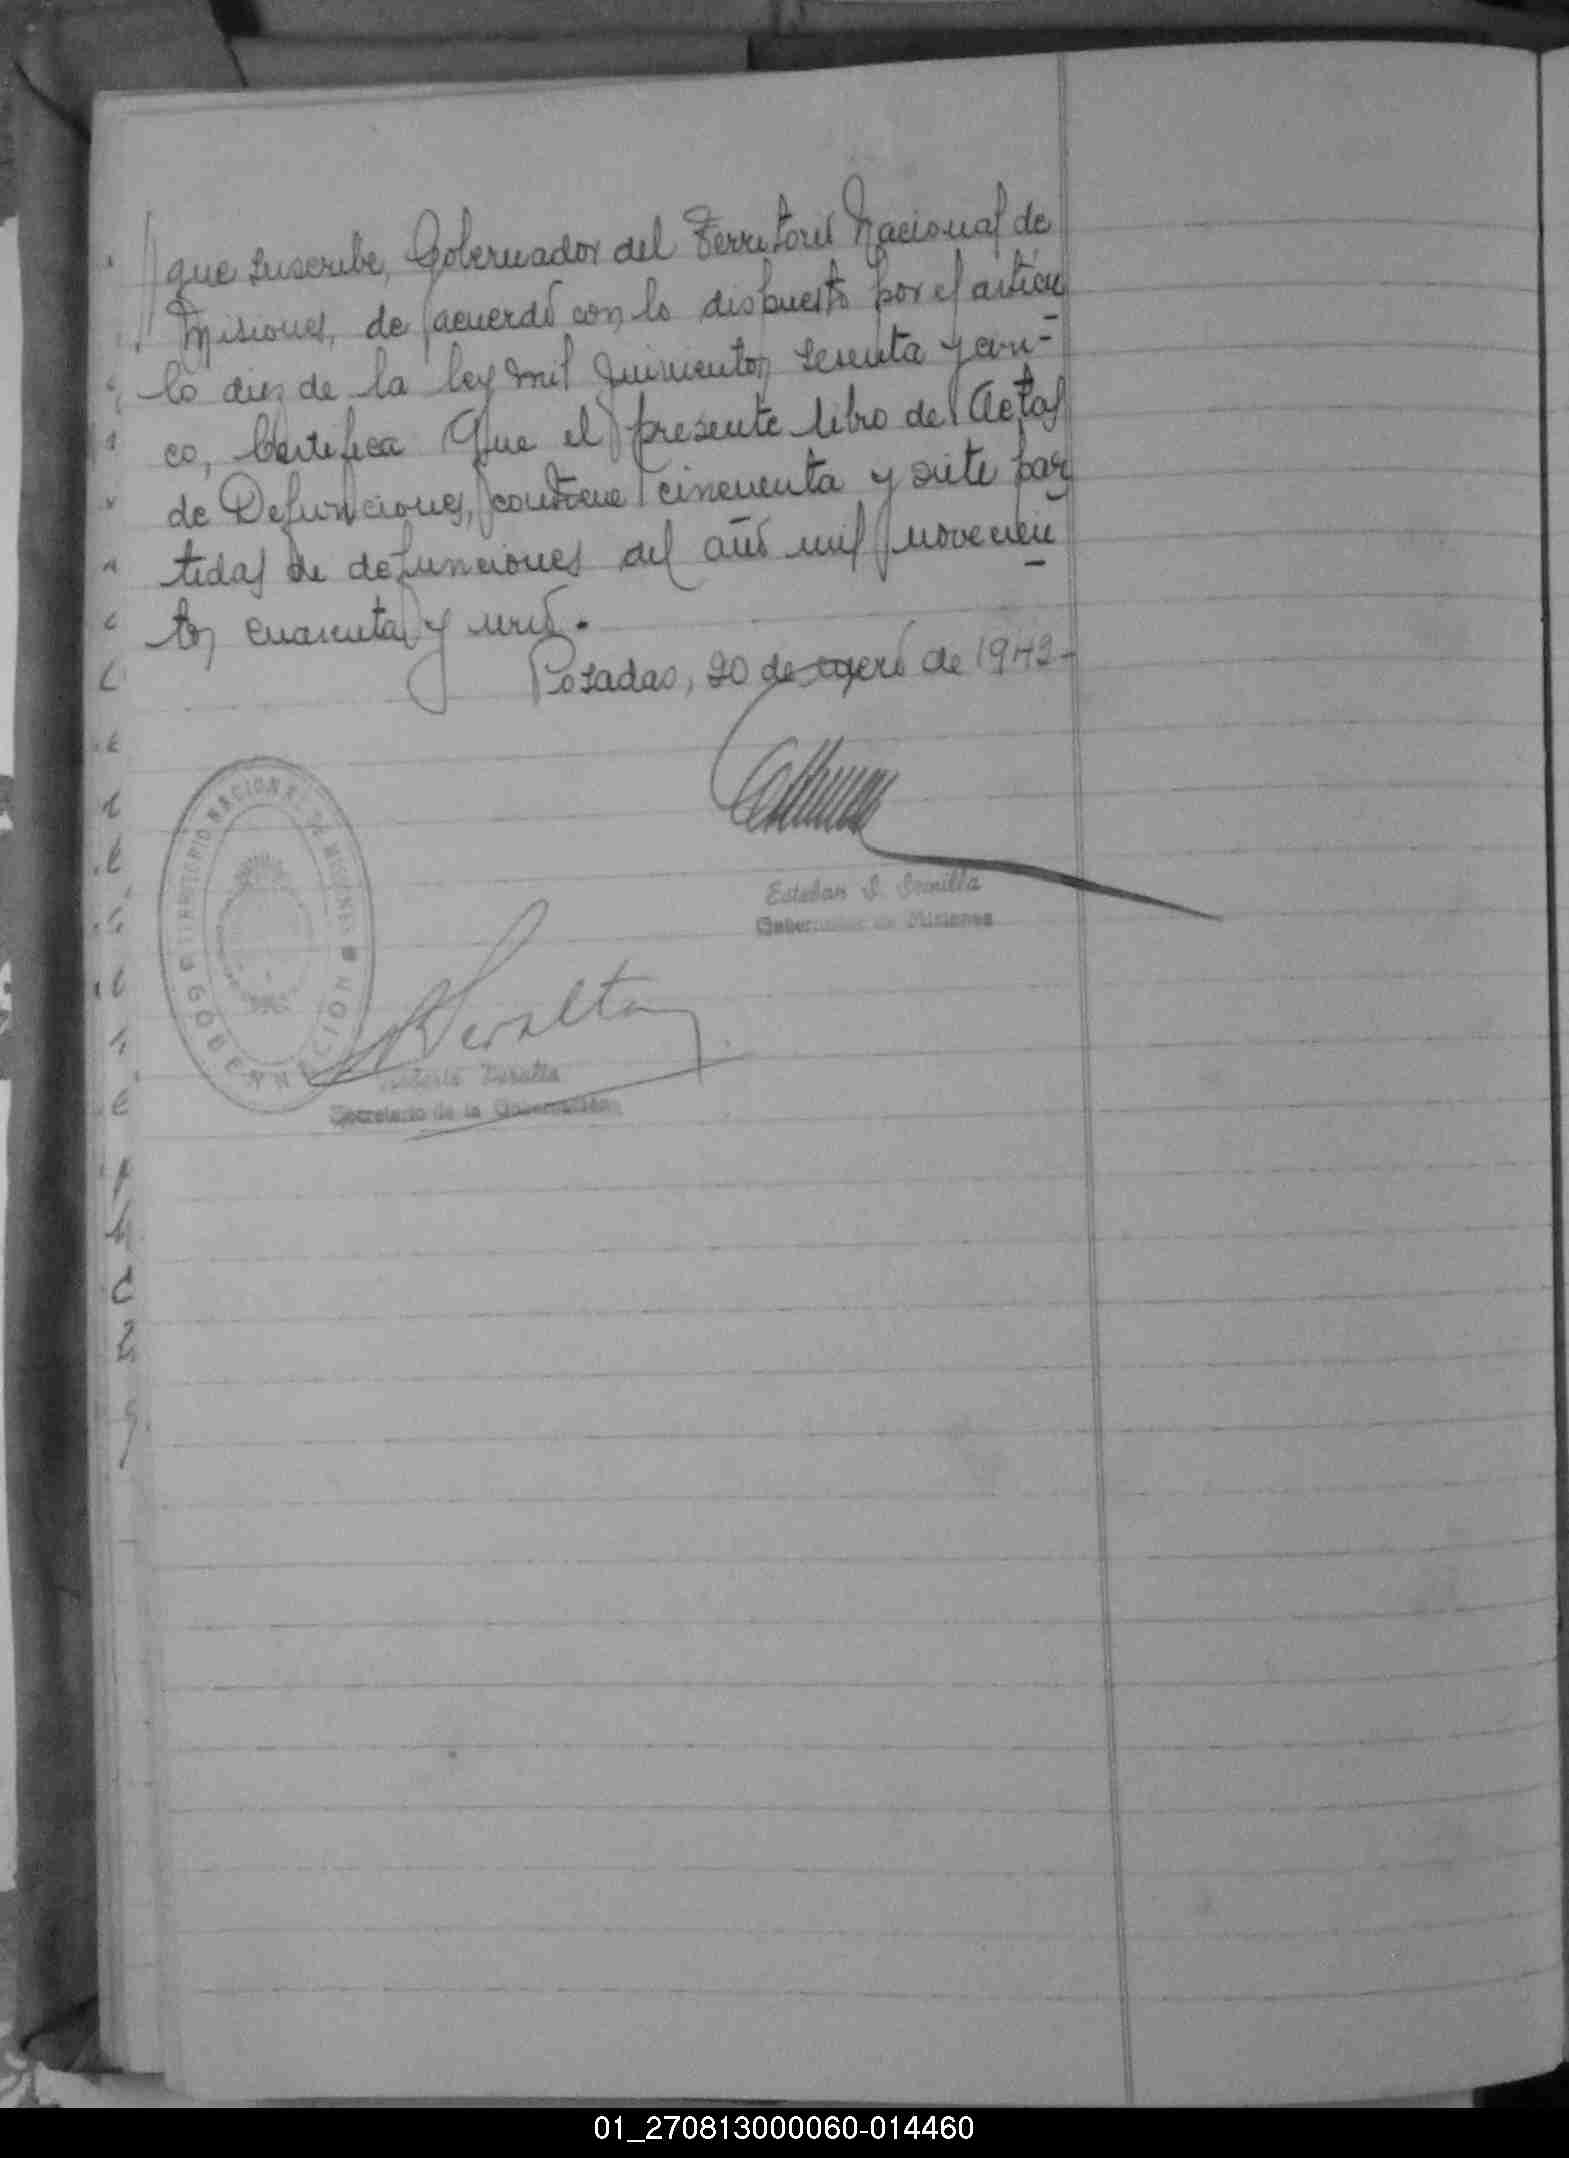 que suscribe, Gobernador del Territorio Nacional de
Misiones, de acuerdo con lo dispuesto por el articu
lo diez de la ley mil quinientos sesenta y cin-
co, Certifica Que el presente libro de Actas
de Defunciones, contiene cincuenta y siete par
tidas de defunciones del año mil novecien
tos cuarenta y uno.
Posadas, 20 de enero de 1942-
TERRITORIO NACIONAL DE MISIONES
GOBERNACION
Esteban
Gobernador de Misiones
Peralta
Peralta
Secretario de la Gobernación
01_270813000060-014460